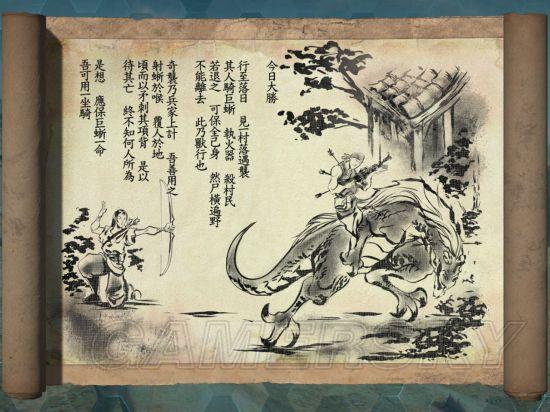 今日大勝
行至落日 見一村落遇襲
其人騎巨蜥 執火器 殺村民
若退之 可保全己身 然尸橫遍野
不能離去 此乃獸行也
奇襲乃兵家上計 吾善用之
射蜥於喉 覆人於地
頃而以矛刺其項背 是以
待其亡 終不知何人所為
是想 應保巨蜥一命
吾可用一坐騎
GAMERSKY